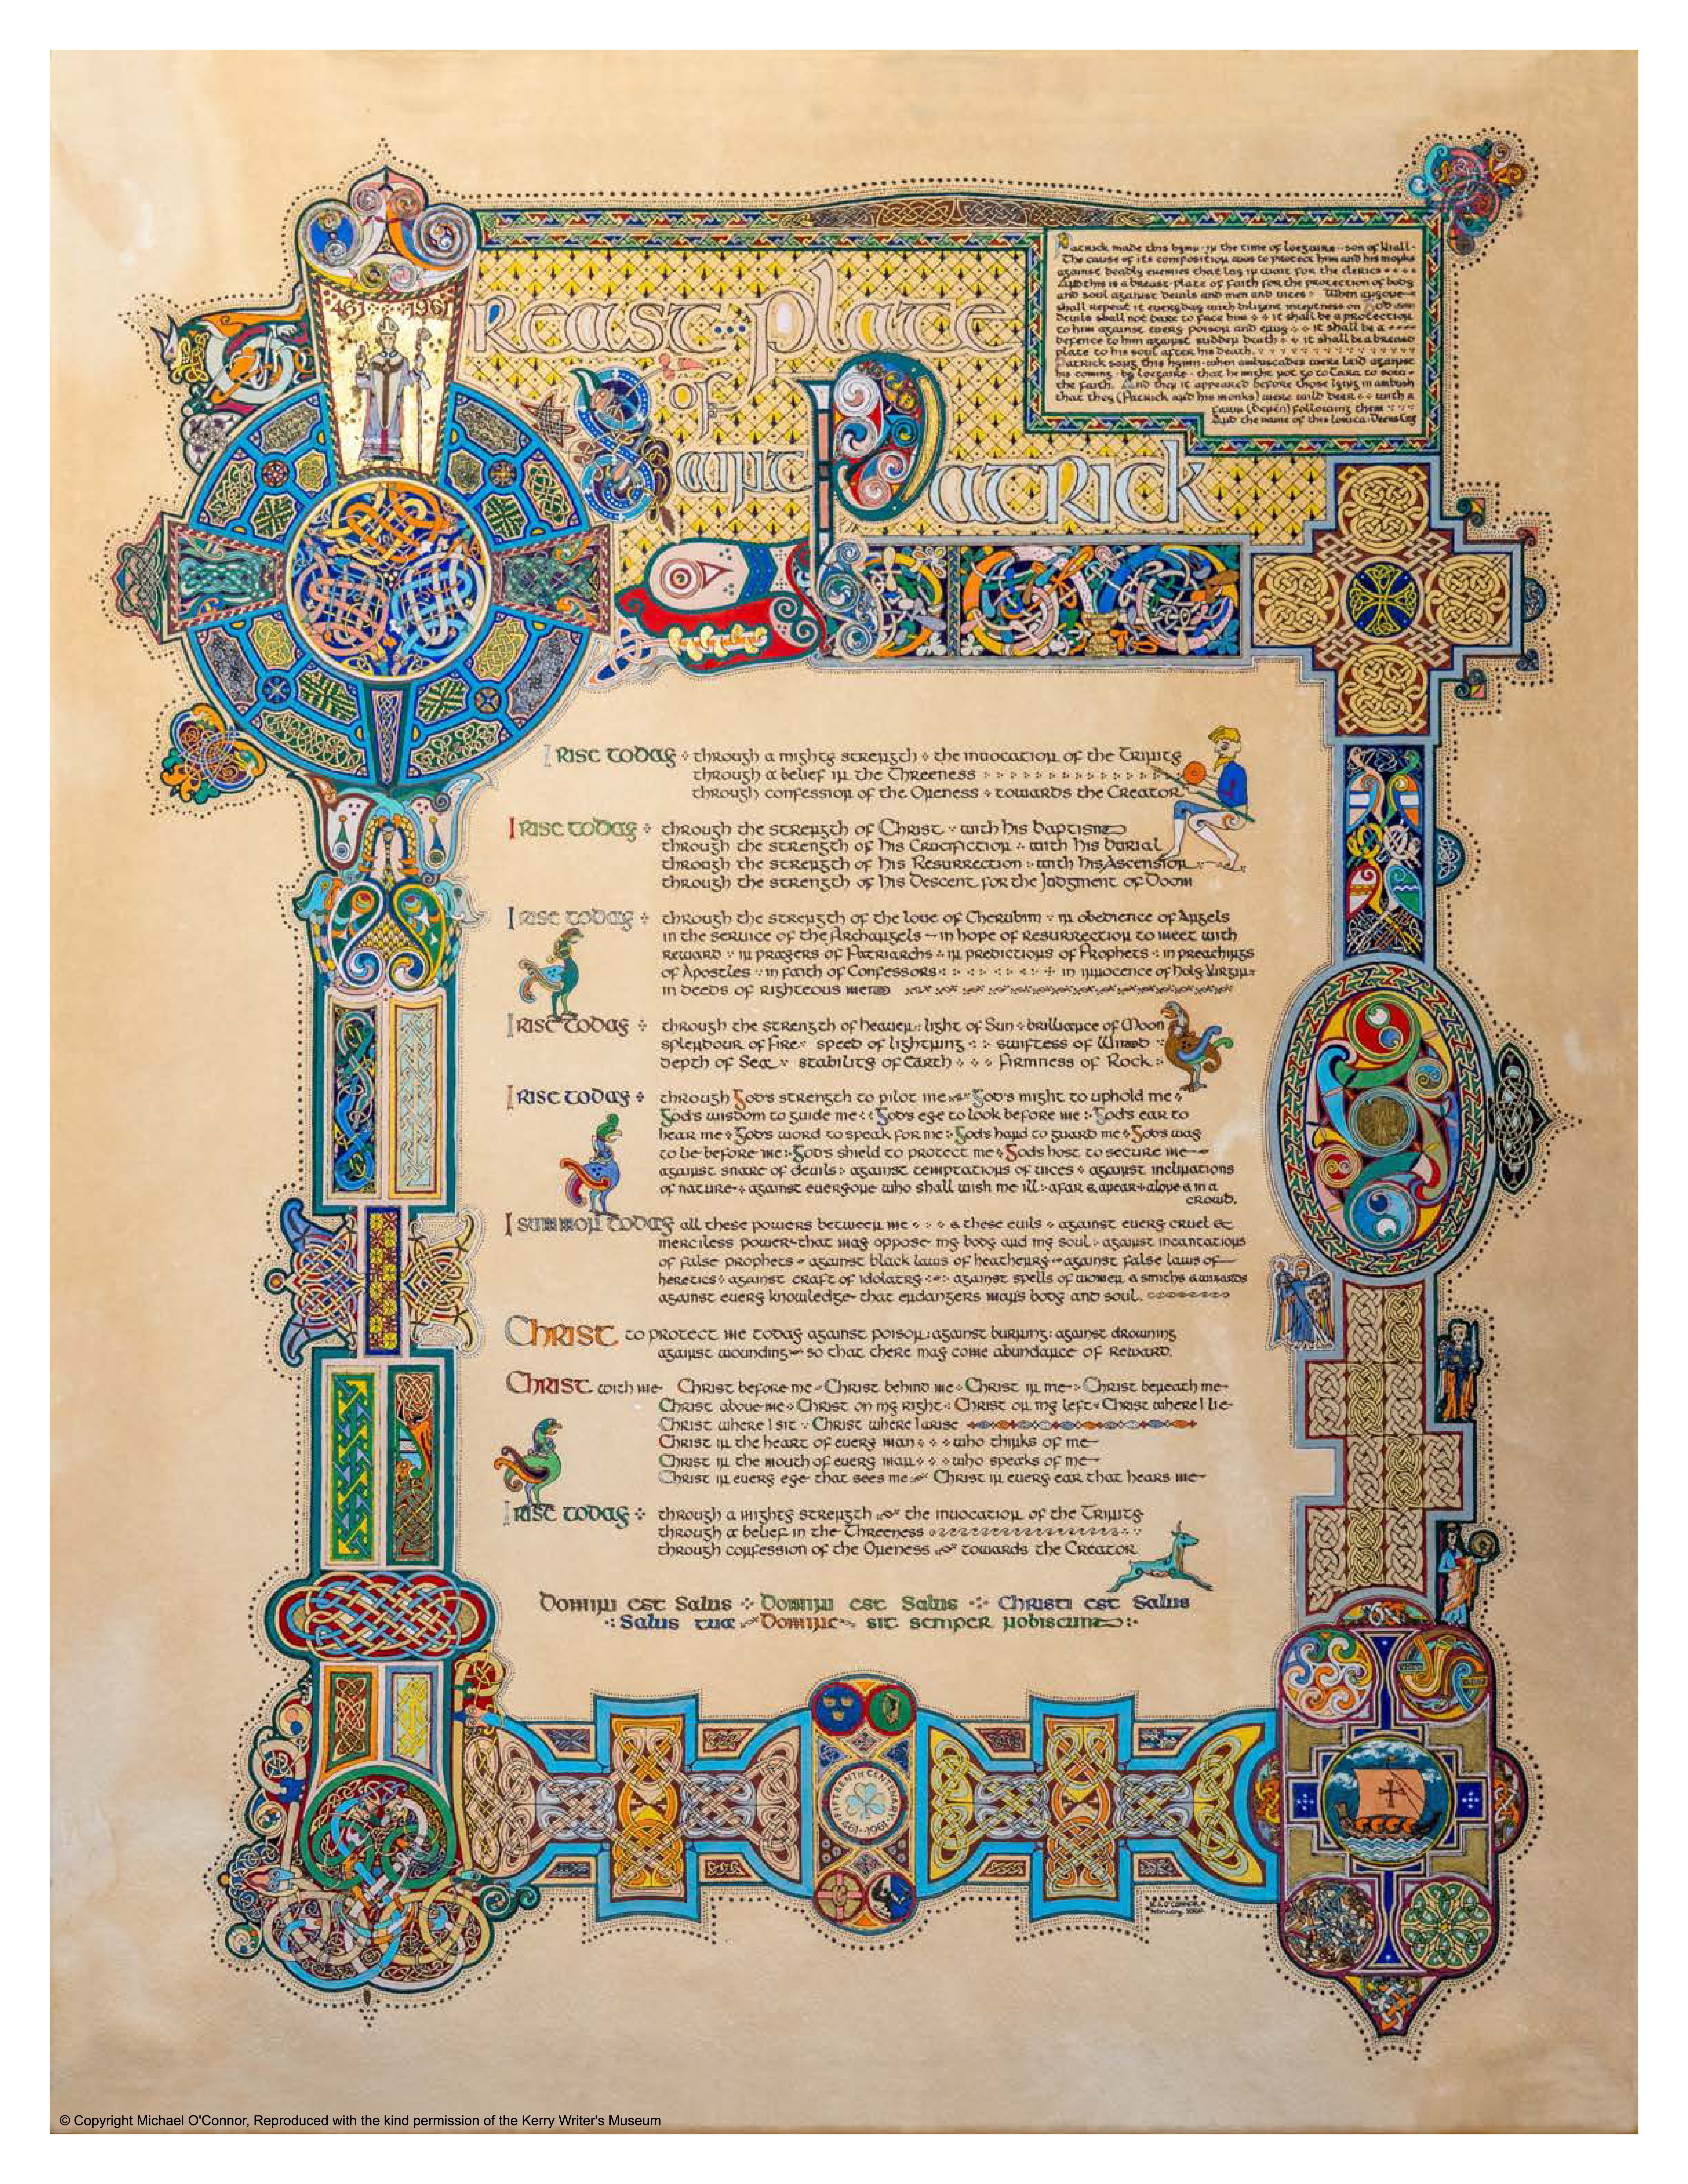 461 1961
Breast-plate
of
Saint Patrick
Patrick made this hymn in the time of Loegaire son of Niall
The cause of its composition was to protect him and his monks
against deadly enemies that lay in wait for the clerics
And this is a breast-plate of faith for the protection of body
and soul against devils and men and vices When anyone
shall repeat it everyday with diligent intentness on God
Devils shall not dare to face him it shall be a protection
to him against every poison and envy it shall be a
defence to him against sudden death it shall be a breast
plate to his soul after his death.
Patrick sang this hymn when ambuscades were laid against
his coming by Loegaire that he might not go to Tara to sow
the faith. And then it appeared before those lying in ambush
that they (Patrick and his monks) were wild deer with a
fawn (Benén) following them
And the name of this lorica: Deers Cry
I rise today through a mighty strength the invocation of the Trinity
through a belief in the Threeness
through confession of the Oneness towards the Creator
I rise today through the strength of Christ with his baptism
through the strength of his Crucifiction with his burial
through the strength of his Resurrection with his Ascension
through the strength of his Descent for the Judgment of Doom
I rise today through the strength of the love of Cherubim in obedience of Angels
in the service of the Archangels – in hope of resurrection to meet with
reward in prayers of Patriarchs in predictions of Prophets in preachings
of Apostles in faith of Confessors in innocence of holy Virgins
in deeds of righteous men
I rise today through the strength of heaven light of Sun brilliance of Moon
splendour of Fire speed of lightning swiftess of Wind
depth of Sea stability of Earth Firmness of Rock
I rise today through God's strength to pilot me God's might to uphold me
God's wisdom to guide me God's eye to look before me God's ear to
hear me God's word to speak for me God's hand to guard me God's way
to lie before me God's shield to protect me God's host to secure me
against snare of devils against temptations of vices against inclinations
of nature against everyone who shall wish me ill afar & anear alone & in a
crowd.
I summon today all these powers between me & these evils against every cruel &
merciless power that may oppose my body and my soul against incantations
of false prophets against black laws of heathenry against false laws of
heretics against craft of idolatry against spells of women & smiths & wizards
against every knowledge that endangers man's body and soul.
Christ to protect me today against poison: against burning: against drowning
against wounding so that there may come abundance of reward.
Christ with me Christ before me Christ behind me Christ in me Christ beneath me
Christ above me Christ on my right Christ on my left Christ where I lie
Christ where I sit Christ where I arise
Christ in the heart of every man who thinks of me
Christ in the mouth of every man who speaks of me
Christ in every eye that sees me Christ in every ear that hears me
I rise today through a mighty strength the invocation of the Trinity
through a belief in the Threeness
through confession of the Oneness towards the Creator
Domini est Salus Domini est Salus Christi est Salus
Salus tua Domine sit semper nobiscum
FIFTEENTH CENTENARY
461-1961
© Copyright Michael O'Connor, Reproduced with the kind permission of the Kerry Writer's Museum